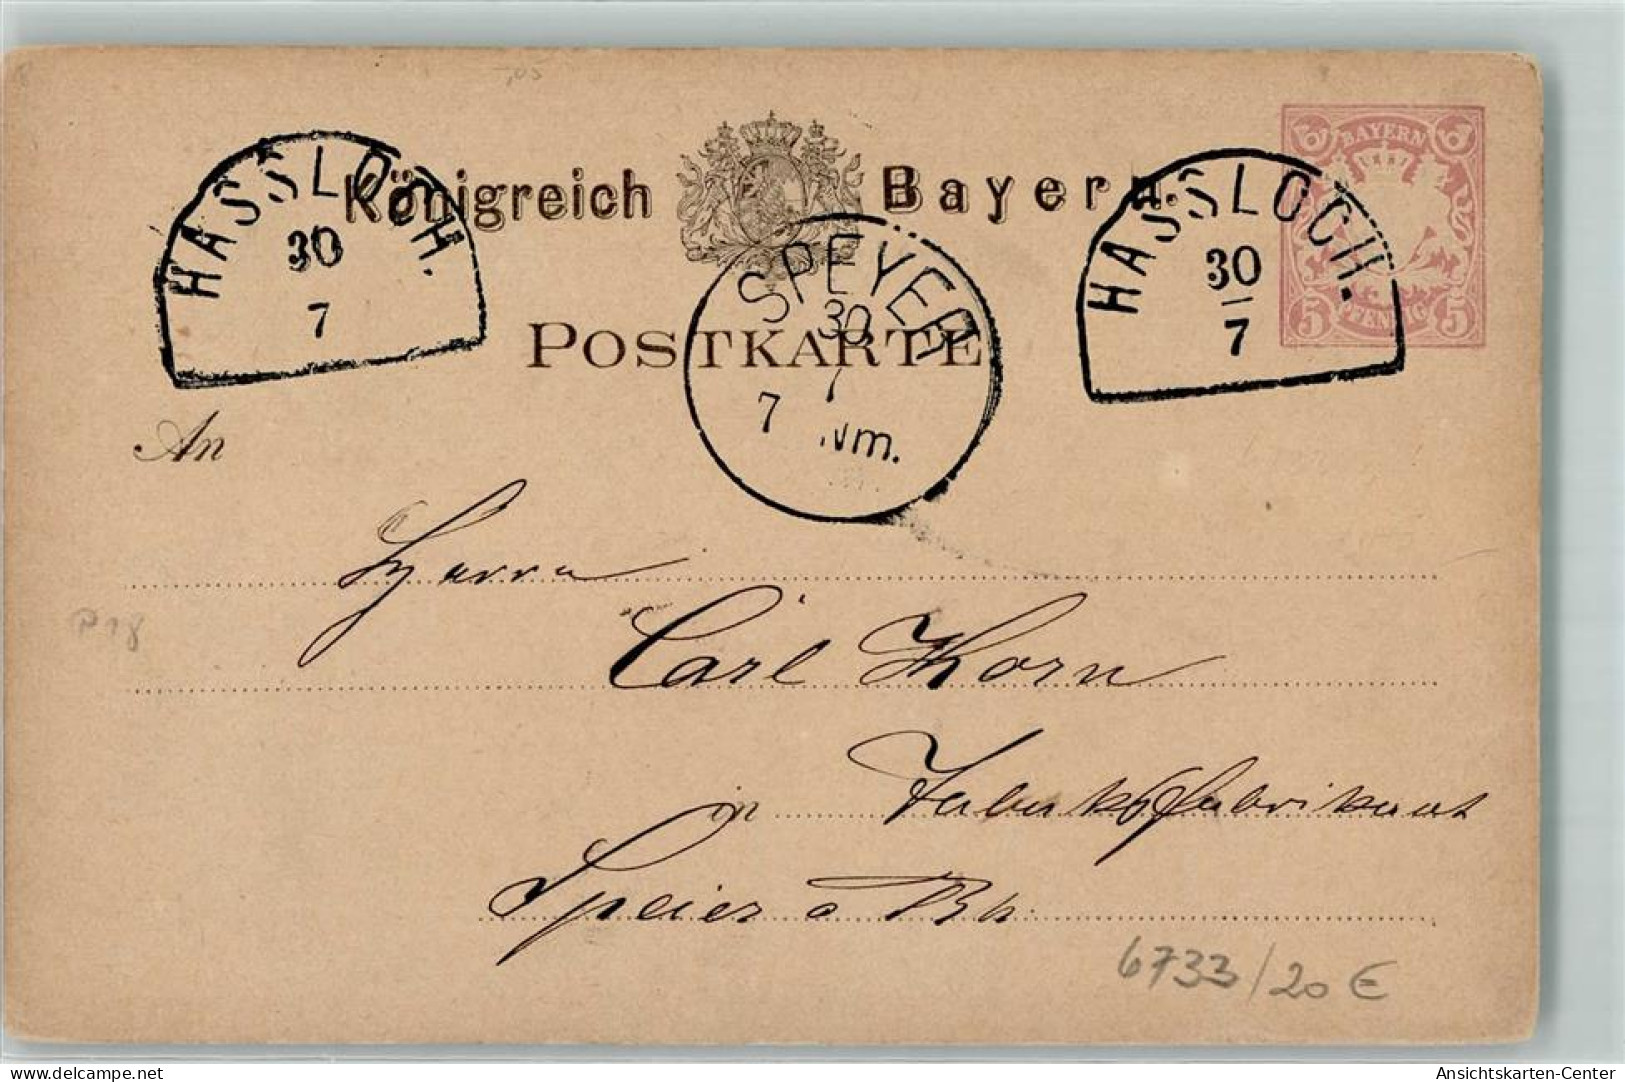 Königreich Bayern.
BAYERN
5 PFENNIG 5
HASSLOCH.
30
7
HASSLOCH.
30
7
SPEYER
30
7
7 Nm.
POSTKARTE
An
Herrn
P 18
Carl Horn
in Tabakfabrikant
Speier a Rh.
6733/20 €
Ansichtskarten-Center